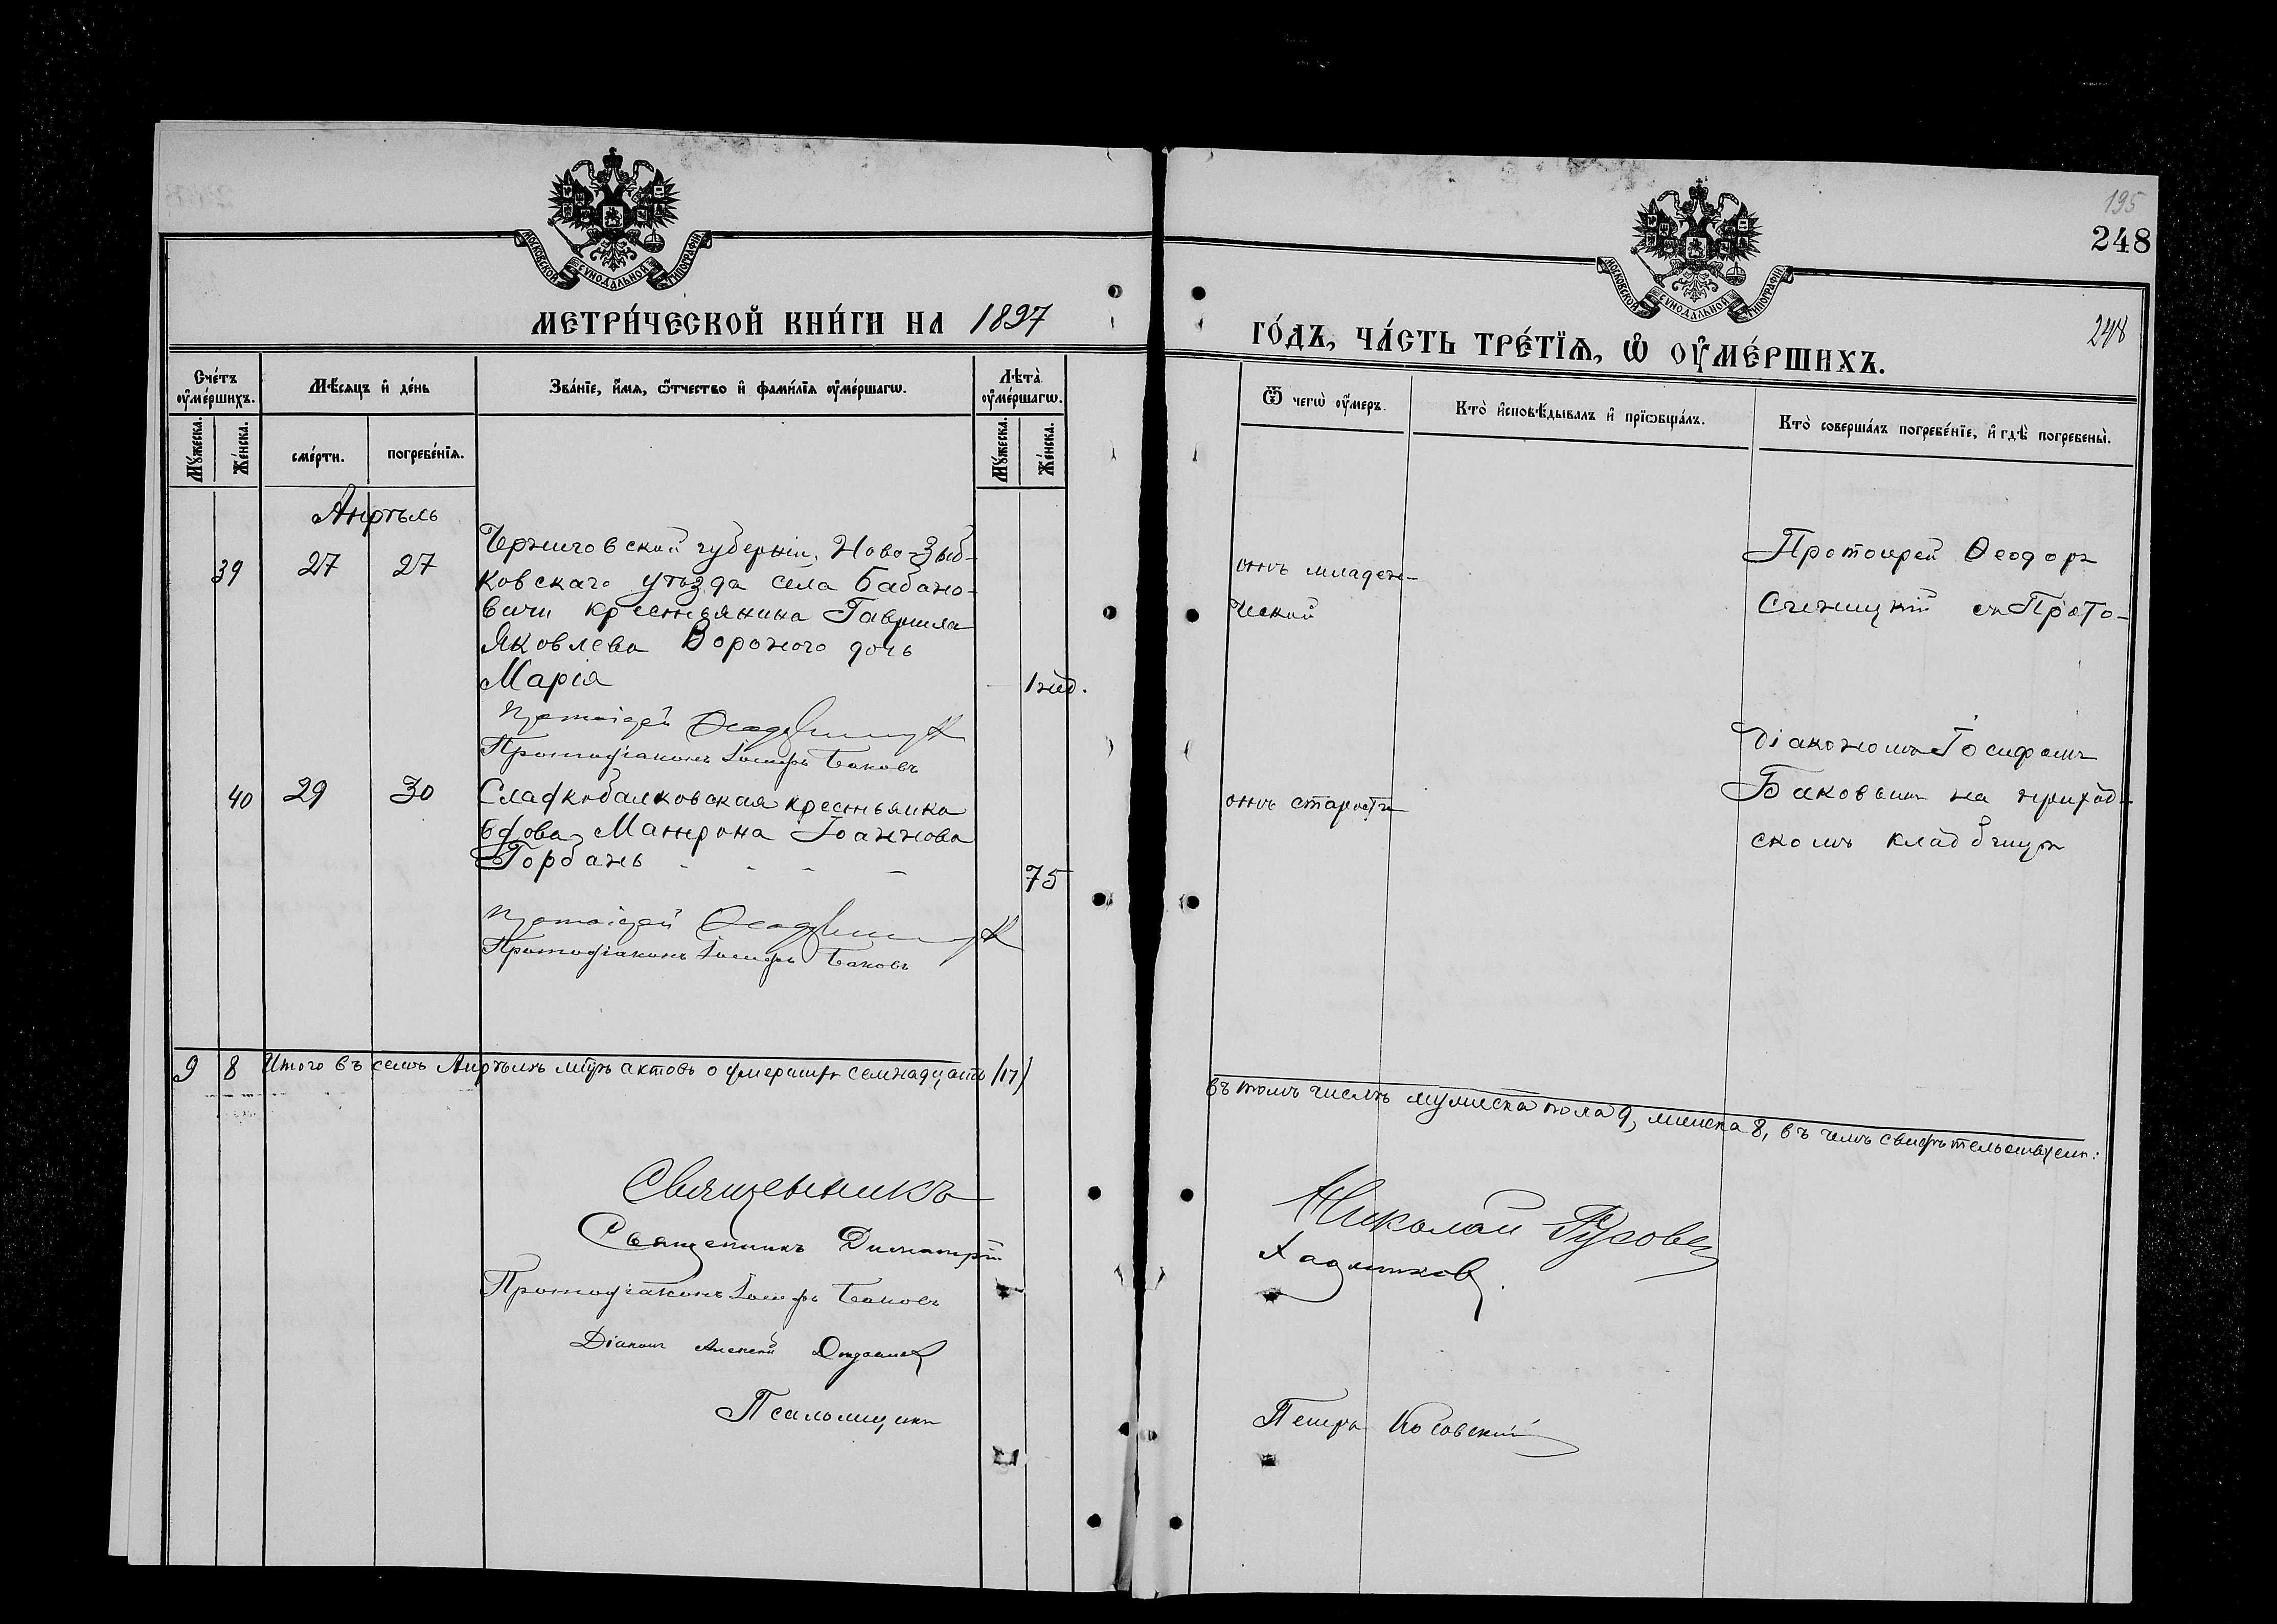 МОСКОВСКОЙ СѴНОДАЛЬНОЙ ТИПОГРАФІИ
МЕТРИ́ЧЕСКОЙ КНИ́ГИ НА 1897
Сче́тъ оу҆ме́ршихъ.
Мѣ́сяцъ и҆ де́нь
Зва́нїе, и҆́мя, ѿтчество и҆ фами́лїя оу҆ме́ршагѡ.
Лѣ́та оу҆ме́ршагѡ.
Мꙋ́жеска.
Же́нска.
сме́рти.
погребе́нїя.
Мꙋ́жеска.
Же́нска.
Апрѣль
39 27 27
Черниговской губерніи, Ново-Зыб-
ковскаго уѣзда села Бабано-
вичи крестьянина Гавріила
Яковлева Вороного дочь
Марія 1 нед.
Протоіерей Ѳеодоръ
Протодіаконъ Іосифъ Баковъ
40 29 30
Сладкобалковская крестьянка
вдова Матрона Іоаннова
Горбань - - - - 75
Протоіерей Ѳеодоръ
Протодіаконъ Іосифъ Баковъ
9 8 Итого въ семъ Апрѣлѣ мцѣ актовъ о умершихъ семнадцать /17/
Священникъ
Священникъ Димитрій
Протодіаконъ Іосифъ Баковъ
Діаконъ Алексѣй
Псаломщикъ
МОСКОВСКОЙ СѴНОДАЛЬНОЙ ТИПОГРАФІИ
195
248
248
ГО́ДЪ, ЧА́СТЬ ТРЕ́ТЇѦ, Ѡ҆ ОУ҆МЕ́РШИХЪ.
Ѿ чегѡ̀ оу҆́меръ.
Кто̀ и҆сповѣ́дывалъ и҆ прїѡбща́лъ.
Кто̀ соверша́лъ погребе́нїе, и҆ гдѣ̀ погребены̀.
отъ младен-
ческой
Протоіерей Ѳеодоръ
съ Прото-
діакономъ Іосифомъ
Баковымъ на приход-
скомъ кладбищѣ
отъ старости
въ томъ числѣ мужеска пола 9, женска 8, въ чемъ свидѣтельствуемъ:
Николай
Петръ Косовскій